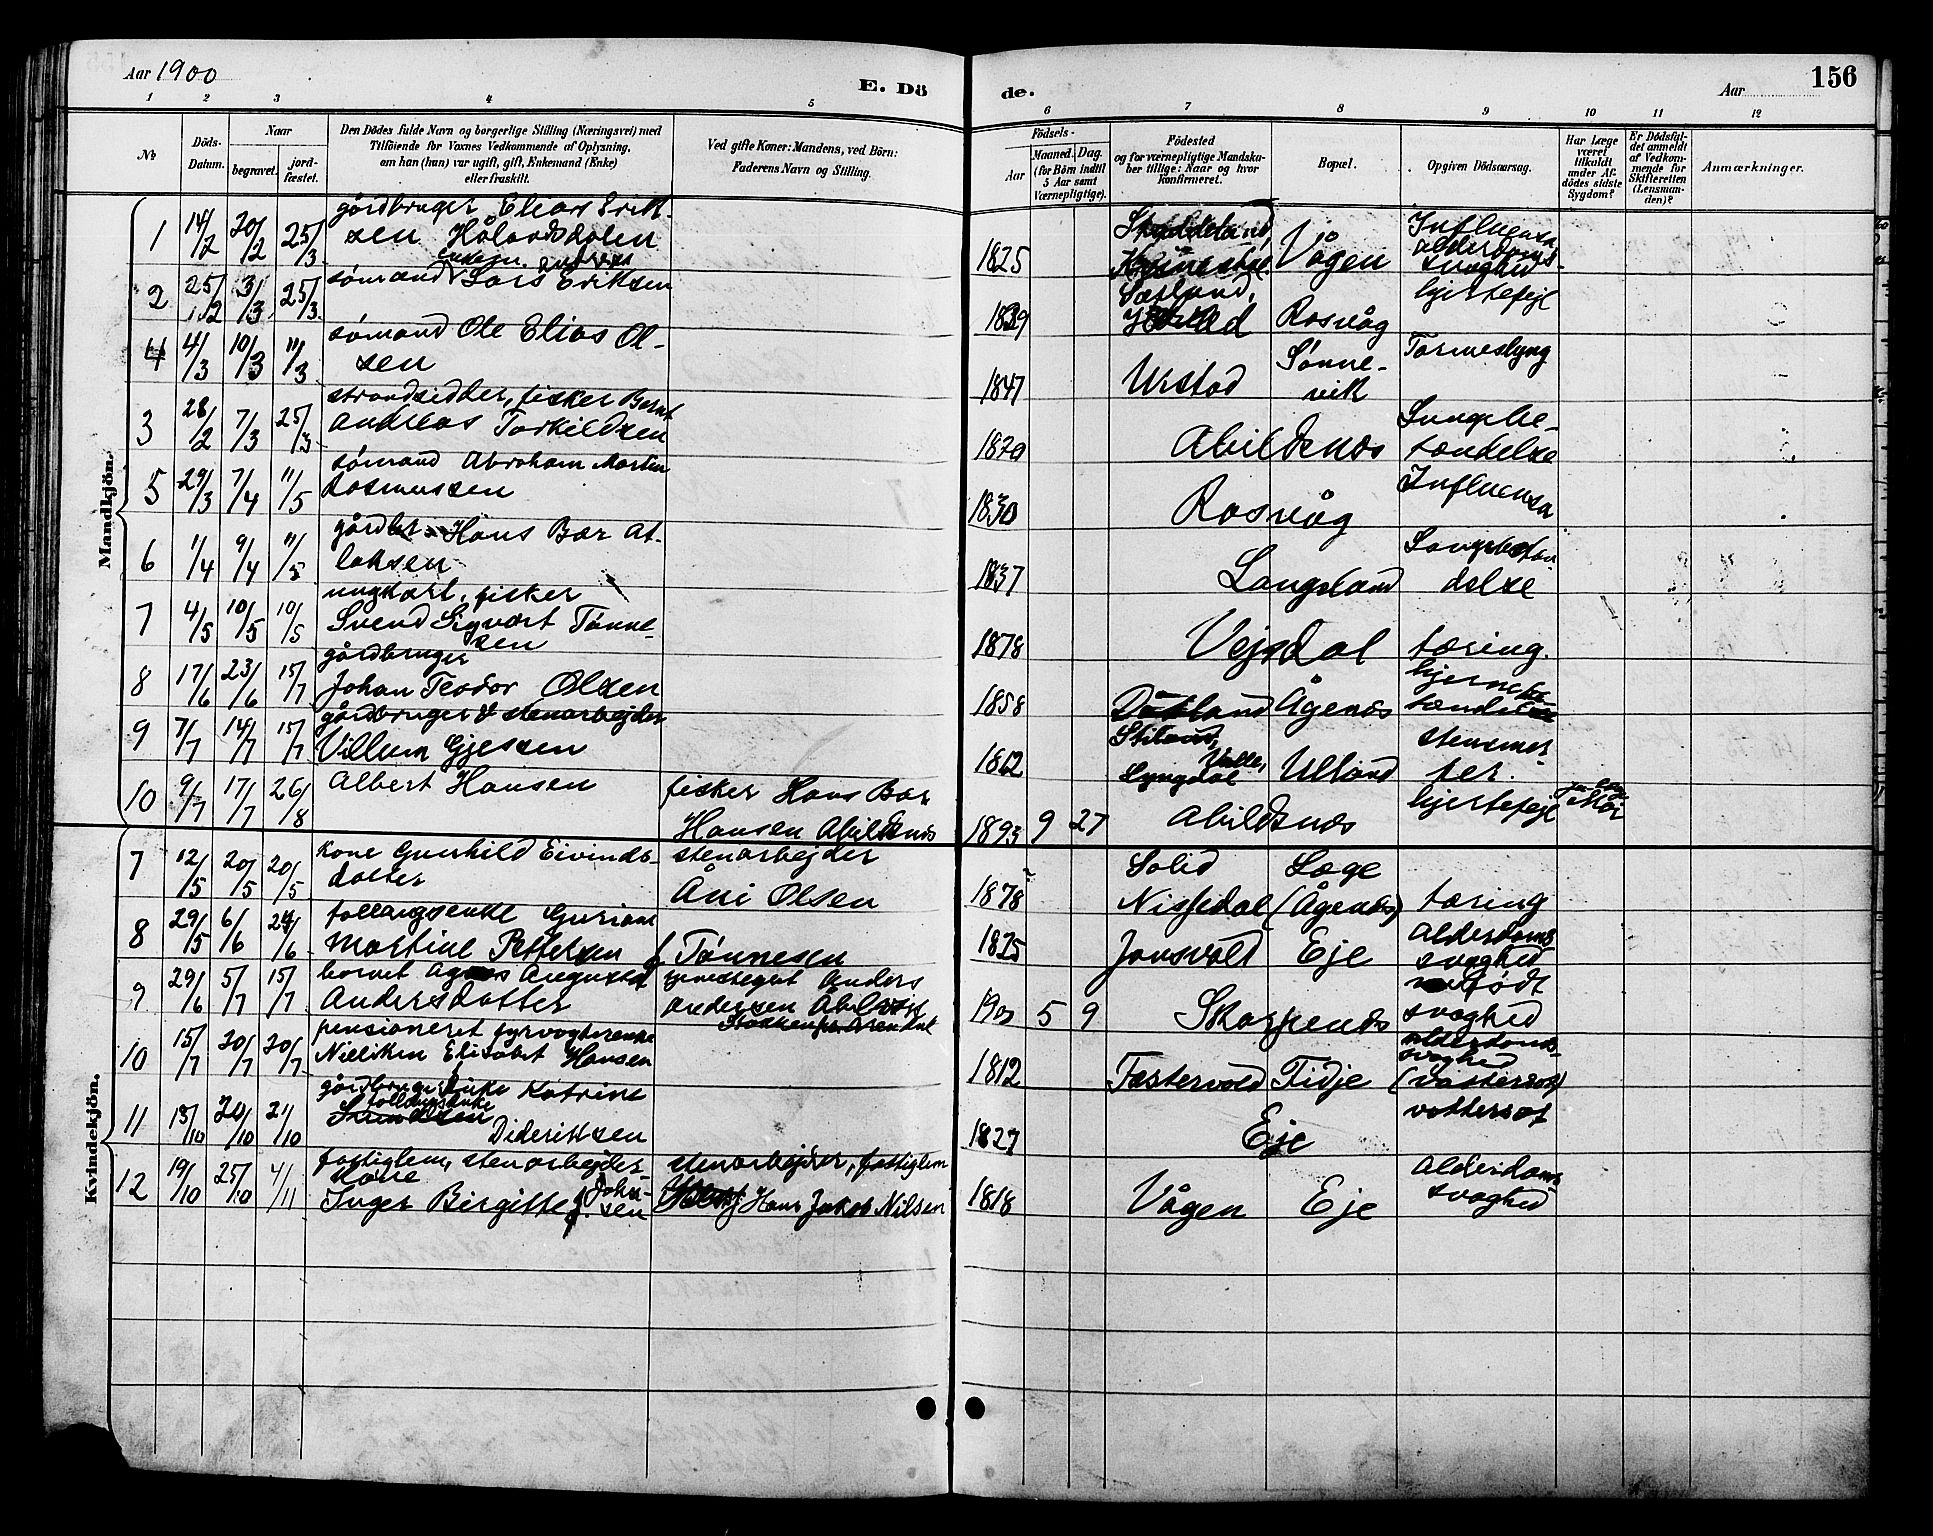 Aar 1900
E. Dö
de.
Aar
156
1 2 3 4 5 6 7 8 9 10 11 12
No
Döds-
Datum.
Naar
begravet.
jord-
fæstet.
Den Dödes fulde Navn og borgerlige Stilling (Næringsvei) med
Tilföiende for Voxnes Vedkommende af Oplysning,
om han (hun) var ugift, gift, Enkemand (Enke)
eller fraskilt.
Ved gifte Koner: Mandens, ved Börn:
Faderens Navn og Stilling.
Födsels-
Aar
Maaned. Dag.
(for Börn indtil
5 Aar samt
Værnepligtige).
Födested
og for værnepligtige Mandska-
ber tillige: Naar og hvor
konfirmeret.
Bopæl.
Opgiven Dödsaarsag.
Har Læge
været
tilkaldt
under Af-
dödes sidste
Sygdom?
Er Dödsfal-
det anmeldt
af Vedkom-
mende for
Skifteretten
(Lensman-
den)?
Anmærkninger.
Mandkjön.
1 14/2 20/2 25/3 gårdbruger Elias Erik-
sen Hålandsdalen
1825 Vågen Influensa
alderdoms-
svaghed
2 25/2 3/3 25/3 sømand Lars Eriksen
1829 Rosvåg hjertefejl
4 4/3 10/3 11/3 sømand Ole Elias Ol-
sen
1847 Urstad Sønne-
vik
3 28/2 7/3 25/3 strandsidder, fisker Bernt
Andreas Torkildsen
1820 Abildsnæs Lungebe-
tændelse
5 29/3 7/4 11/5 sømand Abraham Martin
Rasmussen
1830 Rosvåg Influensa
6 1/4 9/4 11/5 Hans Bar At-
laksen
1837 Langeland
delse
7 4/5 10/5 10/5 ungkarl, fisker
Svend Sigvart Tønne-
sen
1878 Vejsdal tæring.
8 17/6 23/6 15/7 gårdbruger
Johan Teodor Olsen
1858 Ågenæs hjernebe-
9 7/7 14/7 15/7 gårdbruger & stenarbejder
Villum Gjessen
1862 Lyngdal Ulland
10 9/7 17/7 26/8 Albert Hansen fisker Hans Bar
Hansen Abildsnæs
1893 9 27 Abildsnæs hjertefejl
Kvindekjön.
7 12/5 20/5 20/5 Kone Gunhild Eivinds-
datter
stenarbejder
Åni Olsen
1878 Solid
Nissedal
Læge
(Ågenæs)
tæring
8 29/5 6/6 24/6 follaugsenke Guriane
Martine Pettersen f. Tønnesen
1825 Jonsvold Eje Alderdoms
svaghed
9 29/6 5/7 15/7 barnet Agnes Augusta
Andersdatter
tjenestegut Anders
Andersen
5 9 Skarpenæs
svaghed
10 15/7 20/7 20/7 pensioneret fyrvogterenke
Nilliken Elisabet Hansen
1812 Fæstervold Tidje alderdoms-
svaghed
(vattersot)
11 13/10 20/10 21/10 gårdbrugerenke Katrine
Dideriksen
1827 Eje vattersot
12 19/10 25/10 4/11 fattiglem, stenarbejder-
kone
Inger Birgitte f. John-
sen
stenarbejder, fattiglem
Hans Jakob Nilsen
1818 Vågen Eje Alderdoms
svaghed